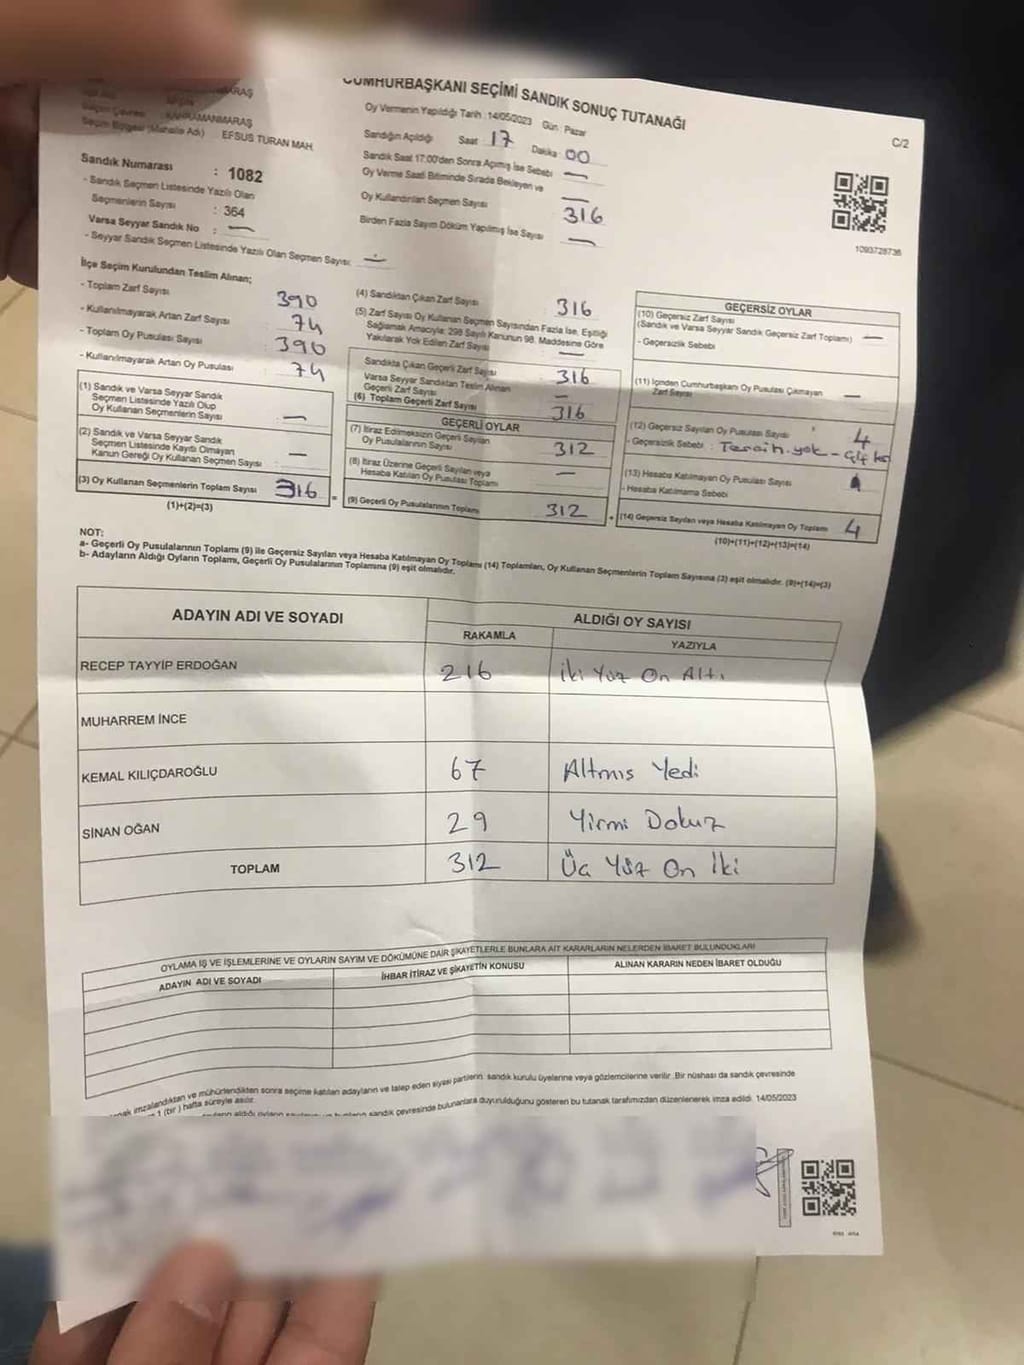 CUMHURBAŞKANI SEÇİMİ SANDIK SONUÇ TUTANAĞI
C/2
KAHRAMANMARAŞ
Seçim Bölgesi (Mahalle Adı) : EFSUS TURAN MAH.
Sandık Numarası : 1082
- Sandık Seçmen Listesinde Yazılı Olan
Seçmenlerin Sayısı : 364
Varsa Seyyar Sandık No : —
- Seyyar Sandık Seçmen Listesinde Yazılı Olan Seçmen Sayısı: —
Oy Vermenin Yapıldığı Tarih : 14/05/2023 Gün : Pazar
Sandığın Açıldığı Saat 17 Dakika 00
Sandık Saat 17:00'den Sonra Açılmış İse Sebebi —
Oy Verme Saati Bitiminde Sırada Bekleyen ve
Oy Kullandırılan Seçmen Sayısı 316
Birden Fazla Sayım Döküm Yapılmış İse Sayısı —
1093728736
İlçe Seçim Kurulundan Teslim Alınan;
- Toplam Zarf Sayısı : 390
- Kullanılmayarak Artan Zarf Sayısı : 74
- Toplam Oy Pusulası Sayısı : 390
- Kullanılmayarak Artan Oy Pusulası : 74
(1) Sandık ve Varsa Seyyar Sandık
Seçmen Listesinde Yazılı Olup
Oy Kullanan Seçmenlerin Sayısı —
(2) Sandık ve Varsa Seyyar Sandık
Seçmen Listesinde Kayıtlı Olmayan
Kanun Gereği Oy Kullanan Seçmen Sayısı —
(3) Oy Kullanan Seçmenlerin Toplam Sayısı 316
(1)+(2)=(3)
(4) Sandıktan Çıkan Zarf Sayısı 316
(5) Zarf Sayısı Oy Kullanan Seçmen Sayısından Fazla İse, Eşitliği
Sağlamak Amacıyla; 298 Sayılı Kanunun 98. Maddesine Göre
Yakılarak Yok Edilen Zarf Sayısı —
Sandıkta Çıkan Geçerli Zarf Sayısı 316
Varsa Seyyar Sandıktan Teslim Alınan
Geçerli Zarf Sayısı —
(6) Toplam Geçerli Zarf Sayısı 316
GEÇERLİ OYLAR
(7) İtiraz Edilmeksizin Geçerli Sayılan
Oy Pusulalarının Sayısı 312
(8) İtiraz Üzerine Geçerli Sayılan veya
Hesaba Katılan Oy Pusulası Toplamı —
= (9) Geçerli Oy Pusulalarının Toplamı 312
GEÇERSİZ OYLAR
(10) Geçersiz Zarf Sayısı
(Sandık ve Varsa Seyyar Sandık Geçersiz Zarf Toplamı) —
- Geçersizlik Sebebi
(11) İçinden Cumhurbaşkanı Oy Pusulası Çıkmayan
Zarf Sayısı —
(12) Geçersiz Sayılan Oy Pusulası Sayısı : 4
- Geçersizlik Sebebi : Tercih yok -
(13) Hesaba Katılmayan Oy Pusulası Sayısı
- Hesaba Katılmama Sebebi
+ (14) Geçersiz Sayılan veya Hesaba Katılmayan Oy Toplamı 4
(10)+(11)+(12)+(13)=(14)
NOT:
a- Geçerli Oy Pusulalarının Toplamı (9) ile Geçersiz Sayılan veya Hesaba Katılmayan Oy Toplamı (14) Toplamları, Oy Kullanan Seçmenlerin Toplam Sayısına (3) eşit olmalıdır. (9)+(14)=(3)
b- Adayların Aldığı Oyların Toplamı, Geçerli Oy Pusulalarının Toplamına (9) eşit olmalıdır.
ADAYIN ADI VE SOYADI ALDIĞI OY SAYISI
RAKAMLA YAZIYLA
RECEP TAYYİP ERDOĞAN 216 İki Yüz On Altı
MUHARREM İNCE
KEMAL KILIÇDAROĞLU 67 Altmış Yedi
SİNAN OĞAN 29 Yirmi Dokuz
TOPLAM 312 Üç Yüz On İki
OYLAMA İŞ VE İŞLEMLERİNE VE OYLARIN SAYIM VE DÖKÜMÜNE DAİR ŞİKAYETLERLE BUNLARA AİT KARARLARIN NELERDEN İBARET BULUNDUKLARI
ADAYIN ADI VE SOYADI İHBAR İTİRAZ VE ŞİKAYETİN KONUSU ALINAN KARARIN NEDEN İBARET OLDUĞU
imzalandıktan ve mühürlendikten sonra seçime katılan adayların ve talep eden siyasi partilerin sandık kurulu üyelerine veya gözlemcilerine verilir. Bir nüshası da sandık çevresinde
1 (bir) hafta süreyle asılır.
sandık çevresinde bulunanlara duyurulduğunu gösteren bu tutanak tarafımızdan düzenlenerek imza edildi. 14/05/2023